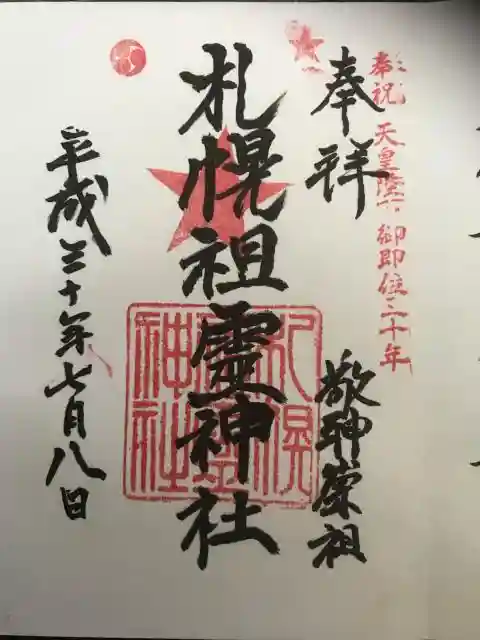 奉祝 天皇陛下 御即位三十年
奉祥
敬神崇祖
札幌祖霊神社
平成三十年七月八日